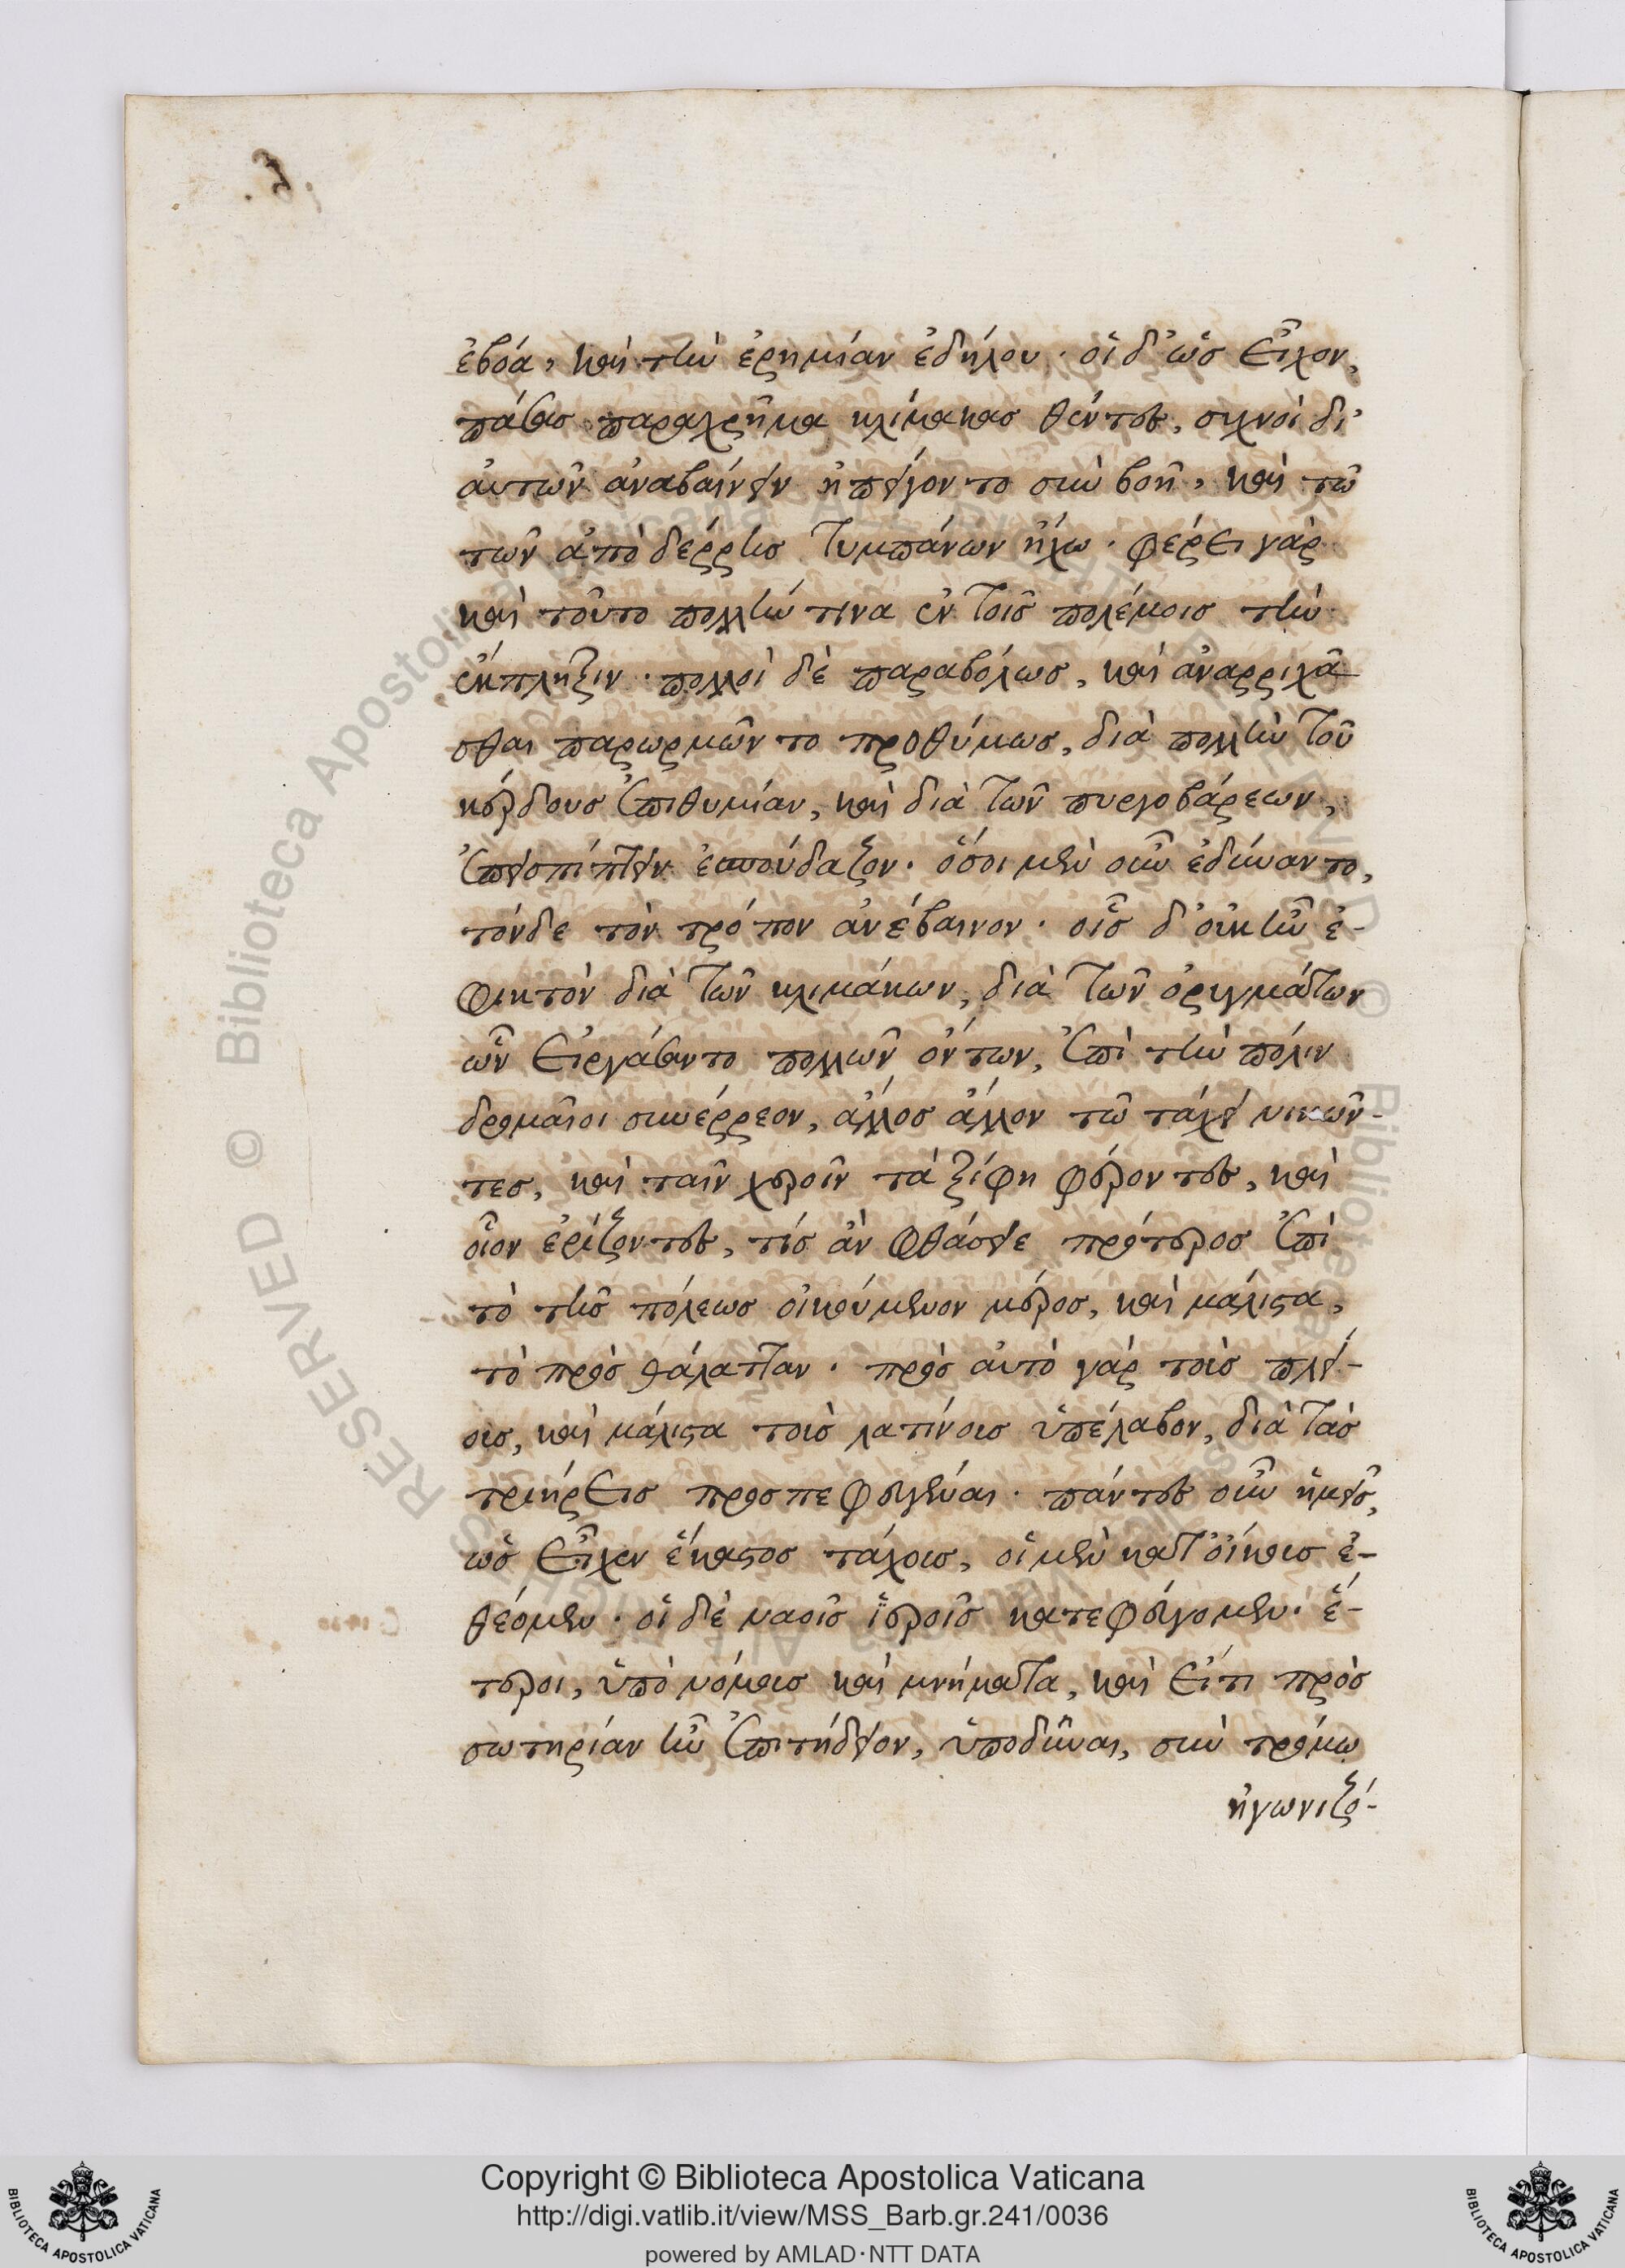 ἐβόα, καὶ τὴν ἐρημίαν ἐδήλου. οἱ δ' ὡς εἶχον,
πάσας παραχρῆμα κλίμακας θέντες, συχνοὶ δι'
αὐτῶν ἀναβαίνειν ἠπείγοντο σὺν βοῇ, καὶ τῷ
τῶν ἀπὸ δέρρης τυμπάνων ἤχῳ. φέρει γὰρ
καὶ τοῦτο πολλήν τινα ἐν τοῖς πολέμοις τὴν
ἔκπληξιν. πολλοὶ δὲ παραβόλως, καὶ ἀναρριχᾶ
σθαι παρωρμῶντο προθύμως, διὰ πολλὴν τοῦ
κέρδους ἐπιθυμίαν, καὶ διὰ τῶν πυργοβάρεων,
ἐπεισπίπτειν ἐσπούδαζον. ὅσοι μὲν οὖν ἐδύναντο,
τόνδε τὸν τρόπον ἀνέβαινον. οἷς δ' οὐκ ἦν ἐ-
φικτὸν διὰ τῶν κλιμάκων, διὰ τῶν ὀρυγμάτων
ὧν εἰργάσαντο πολλῶν ὄντων, ἐπὶ τὴν πόλιν
δρομαῖοι συνέρρεον, ἄλλος ἄλλον τῷ τάχει νικῶν-
τες, καὶ ταῖν χεροῖν τὰ ξίφη φέροντες, καὶ
οἷον ἐρίζοντες, τίς ἂν φθάσειε πρότερος ἐπὶ
τὸ τῆς πόλεως οἰκούμενον μέρος, καὶ μάλιστα,
τὸ πρὸς θάλατταν. πρὸς αὐτὸ γὰρ τοὺς πλεί-
ους, καὶ μάλιστα τοὺς λατίνους ὑπέλαβον, διὰ τὰς
τριήρεις προσπεφευγέναι. πάντες οὖν ἡμεῖς,
ὡς εἶχεν ἕκαστος τάχους, οἱ μὲν κατ' οἴκους ἐ-
θέομεν. οἱ δὲ ναοῖς ἱεροῖς κατεφεύγομεν. ἕ-
τεροι, ὑπὸ νόμους καὶ μνήματα, καὶ εἴ τι πρὸς
σωτηρίαν ἦν ἐπιτήδειον, ὑποδῦναι, σὺν τρόμῳ
ἠγωνιζό-
Copyright © Biblioteca Apostolica Vaticana
http://digi.vatlib.it/view/MSS_Barb.gr.241/0036
powered by AMLAD·NTT DATA